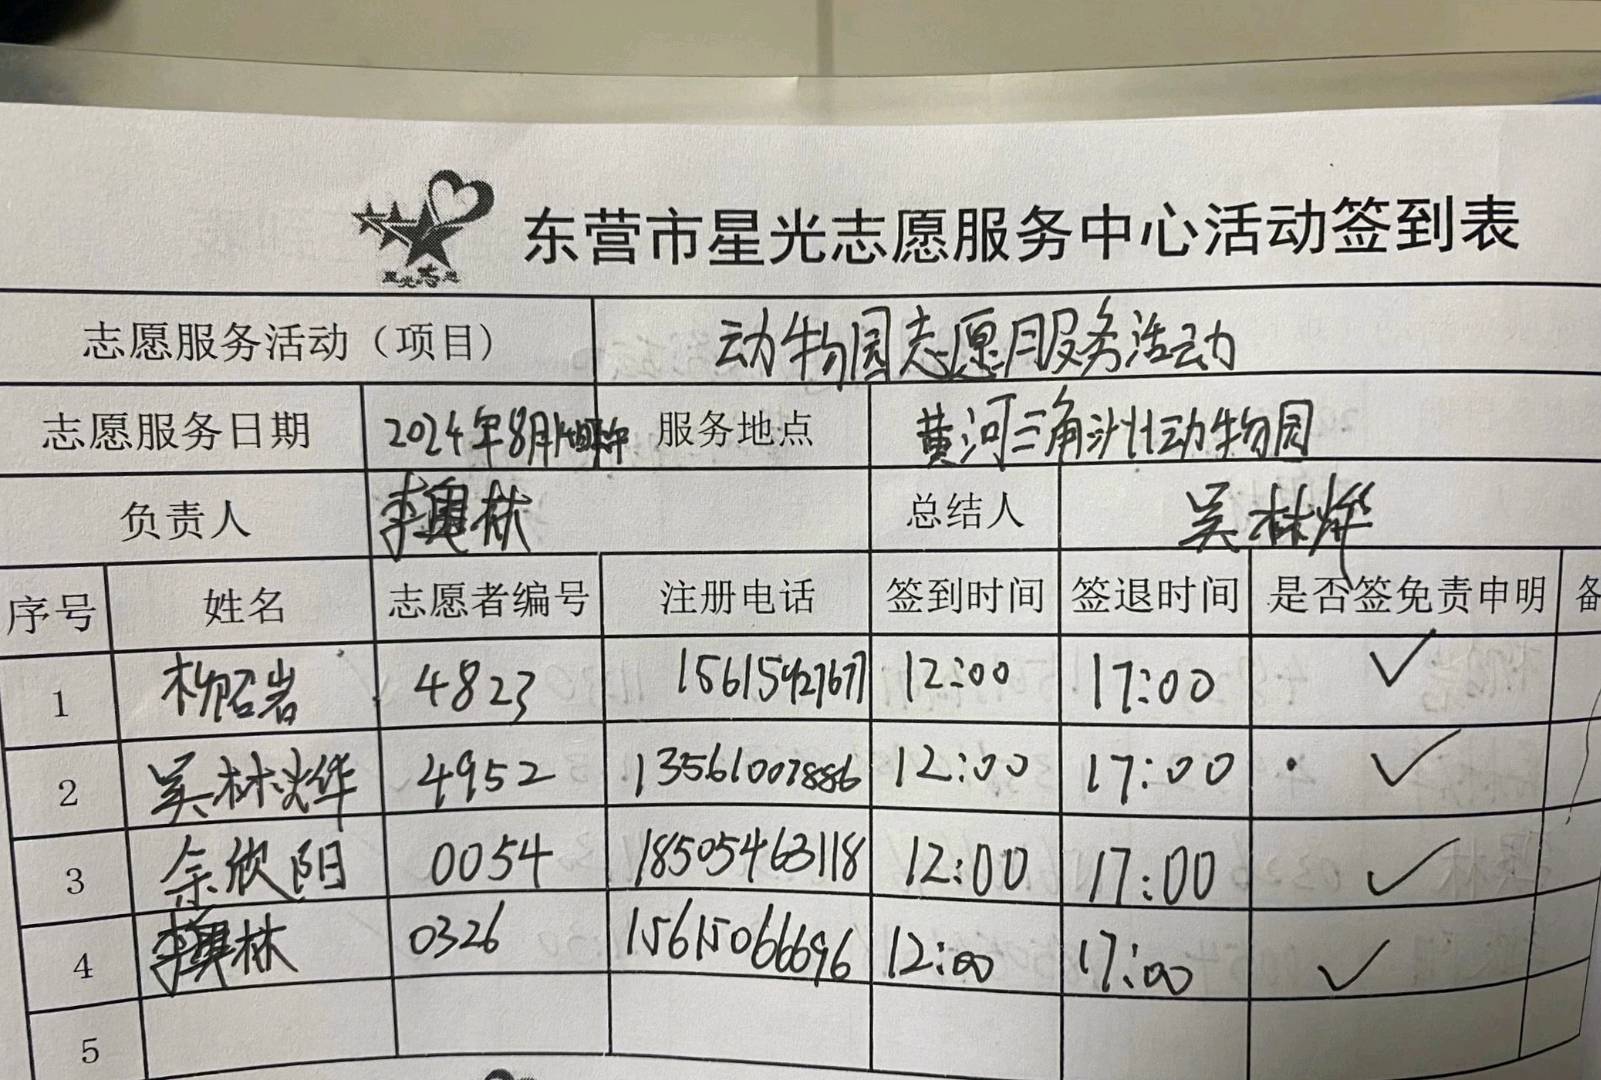 星光志愿
东营市星光志愿服务中心活动签到表
志愿服务活动（项目） 动物园志愿服务活动
志愿服务日期 2024年8月 服务地点 黄河三角洲动物园
负责人 李奥林 总结人 吴林烨
序号 姓名 志愿者编号 注册电话 签到时间 签退时间 是否签免责申明 备
1 柳昭岩 4823 15615927677 12:00 17:00 ✓
2 吴林烨 4952 13561007886 12:00 17:00 ✓
3 余欣阳 0054 18505463118 12:00 17:00 ✓
4 李奥林 0326 15615066696 12:00 17:00 ✓
5